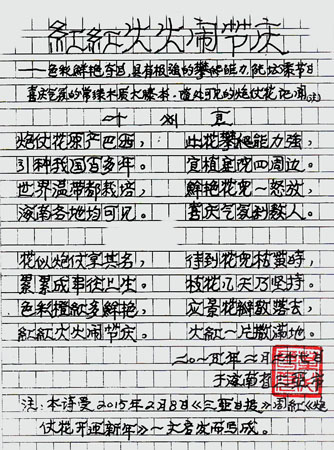 红红火火闹节庆
——色彩鲜艳夺目,具有极强的攀爬能力,
喜庆气氛的常绿木质大藤本。道处可见的炮仗花记闻(汉)
炮仗花原产巴西, 此花攀爬能力强,
引种我国百多年。 宜植庭院四周边。
世界温带都栽培, 鲜艳花儿一怒放,
海南各地均可见。 喜庆气氛到教人。
花似炮仗享其名, 待到花儿枯黄時,
累累成串往上生。 枝花几天乃坚持。
色彩橙红多鲜艳, 应景花瓣散落去,
红红火火闹节庆。 火红一片撒满地。
二〇一五年二月
于海南省
注:本诗受2015年2月8日《三亚日报》周红《炮
仗花开迎新年》一文启发而写成。